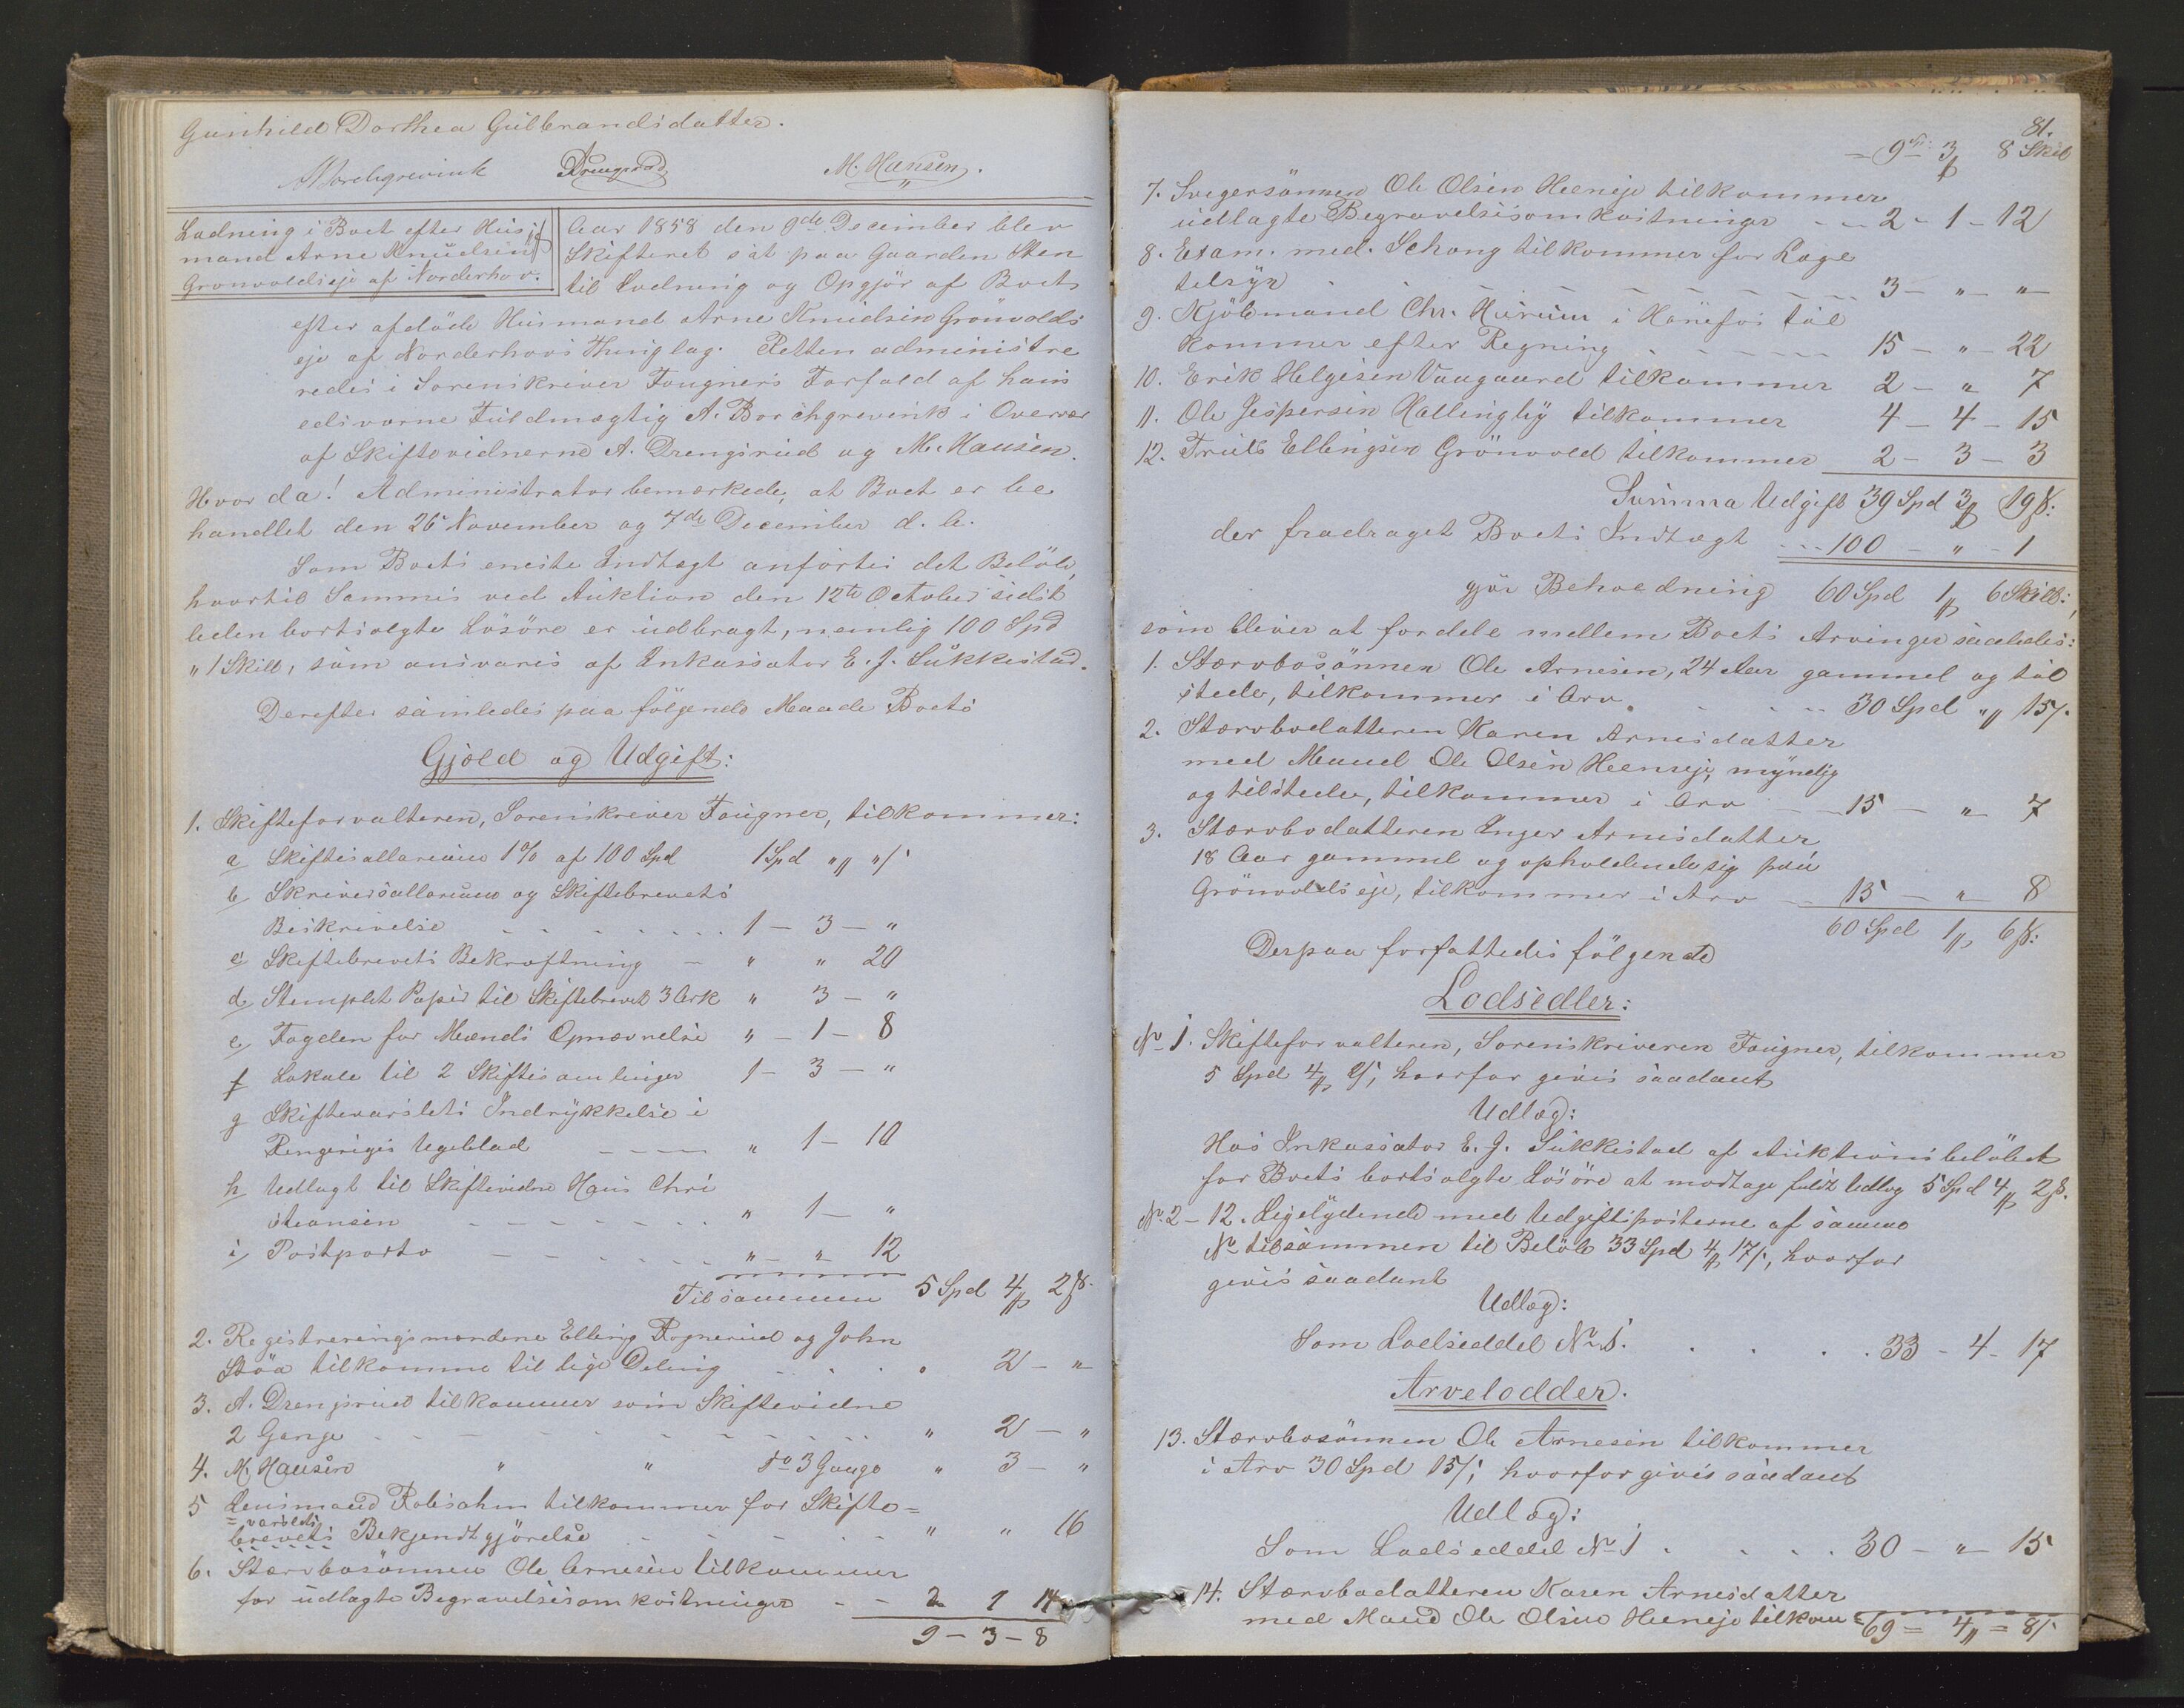 Gunhild Dorthea Gulbrandsdatter.
A Borchgrevink Drengsrud M. Hansen.
Lodning i Boet efter Hus¬
mand Arne Knudsen
Grønvoldseje af Norderhov.
Aar 1858 den 9de December blev
Skifteret sat paa Gaarden Sten
til Lodning og Opgjör af Boet
efter afdöde Husmand Arne Knudsen Grönvolds
eje af Norderhovs Thinglag. Retten administre
redes i Sorenskriver Fougners Forfald af hans
edsvorne Fuldmægtig A. Borchgrevink i Overvær
af Skiftevidnerne A. Drengsrud og M. Hansen.
Hvor da! Administrator bemærkede, at Boet er be
handlet den 26 November og 7de December d. A.
Som Boets eneste Indtægt anförtes det Belöb,
hvortil Sammes ved Auktion den 12te October sidst
leden bortsolgte Lösöre er udbragt, nemlig 100 Spd
" 1 Skill, som ansvares af Inkassator E. J. Sukkestad.
Derefter samledes paa fölgende Maade Boets
Gjæld og Udgift:
1. Skifteforvalteren, Sorenskriver Fougner, tilkommer:
a Skiftesallarium 1% af 100 Spd 1 Spd " "
b Skriversallarium og Skiftebrevets
Beskrivelse 1 - 3 - "
c Skiftebrevets Bekræftning - " " 20
d Stemplet Papir til Skiftebrevet 3 Ark " 3 - "
e Fogden for Mænds Opnævnelse " - 1 - 8
f Lokale til 2 Skiftesamlinger 1 - 3 - "
g Skiftevarslets Indrykkelse i
Ringeriges Ugeblad " 1 - 10
h Udlagt til Skiftevidne Hans Chri
stiansen " 1 - "
i Postporto " - " 12
Tilsammen 5 Spd 4 2 s.
2. Registreringsmændene Elling Rognerud og John
Stöa tilkomme til lige Deling " 2 - "
3. A. Drengsrud tilkommer som Skiftevidne
2 Gange " 2 - "
4. M. Hansen " " do 3 Gange " 3 - "
5 Lensmand Robsahm tilkommer for Skifte=
= varslets
brevets Bekjendtgjörelse " " 16
6. Stærvbosönnen Ole Arnesen tilkommer
for udlagte Begravelsesomkostninger - - 2 1 14
9 - 3 - 8
81.
= 9 Spd: 3 8 Skill
7. Svigersönnen Ole Olsen Heeneje tilkommer
udlagte Begravelsesomkostninger - - 2 - 1 - 12
8. Exam. med. Schong tilkommer for Læge
tilsyn 3 - " - "
9. Kjöbmand Chr. Hurum i Hönefos til
kommer efter Regning 15 - " - 22
10. Erik Helgesen Vaagaard tilkommer 2 - " 7
11. Ole Jespersen Hallingby tilkommer 4 - 4 - 15
12. Truls Ellingsen Grönvold tilkommer 2 - 3 - 3
Summa Udgift 39 Spd 3 19 s:
der fradraget Boets Indtægt - - - 100 - " - 1
gjör Beholdning 60 Spd 1 6 Skill:,
som bliver at fordele mellem Boets Arvinger saaledes:
1. Stærvbosönnen Ole Arnesen, 24 Aar gammel og til
stede, tilkommer i Arv. 30 Spd " 15 s.
2. Stærvbodatteren Karen Arnesdatter
med Mand Ole Olsen Heeneje, myndig
og tilstede, tilkommer i Arv 15 - " 7
3. Stærvbodatteren Inger Arnesdatter,
18 Aar gammel og opholdende sig paa
Grönvoldseje, tilkommer i Arv - 15 - " - 8
60 Spd 1 6 s:
Derpaa forfattedes fölgende
Lodsedler:
No 1. Skifteforvalteren, Sorenskriveren Fougner, tilkommer
5 Spd 4 2 s, hvorfor gives saadant
Udlæg:
Hos Inkassator E. J. Sukkestad af Auktionsbelöbet
for Boets bortsolgte Lösöre at modtage fuldt Udlæg 5 Spd 4 2 s.
No. 2 - 12. Ligelydende med Udgiftsposterne af samme
No tilsammen til Belöb 33 Spd 4 17 s, hvorfor
gives saadant
Udlæg:
Som Lodseddel No 1. 33 - 4 - 17
Arvelodder.
13. Stærvbosönnen Ole Arnesen tilkommer
i Arv 30 Spd 15 s; hvorfor gives saadant
Udlæg:
Som Lodseddel No 1 30 - " - 15
14. Stærvbodatteren Karen Arnesdatter
med Mand Ole Olsen Heeneje tilkom
69 = 4 = 8 s